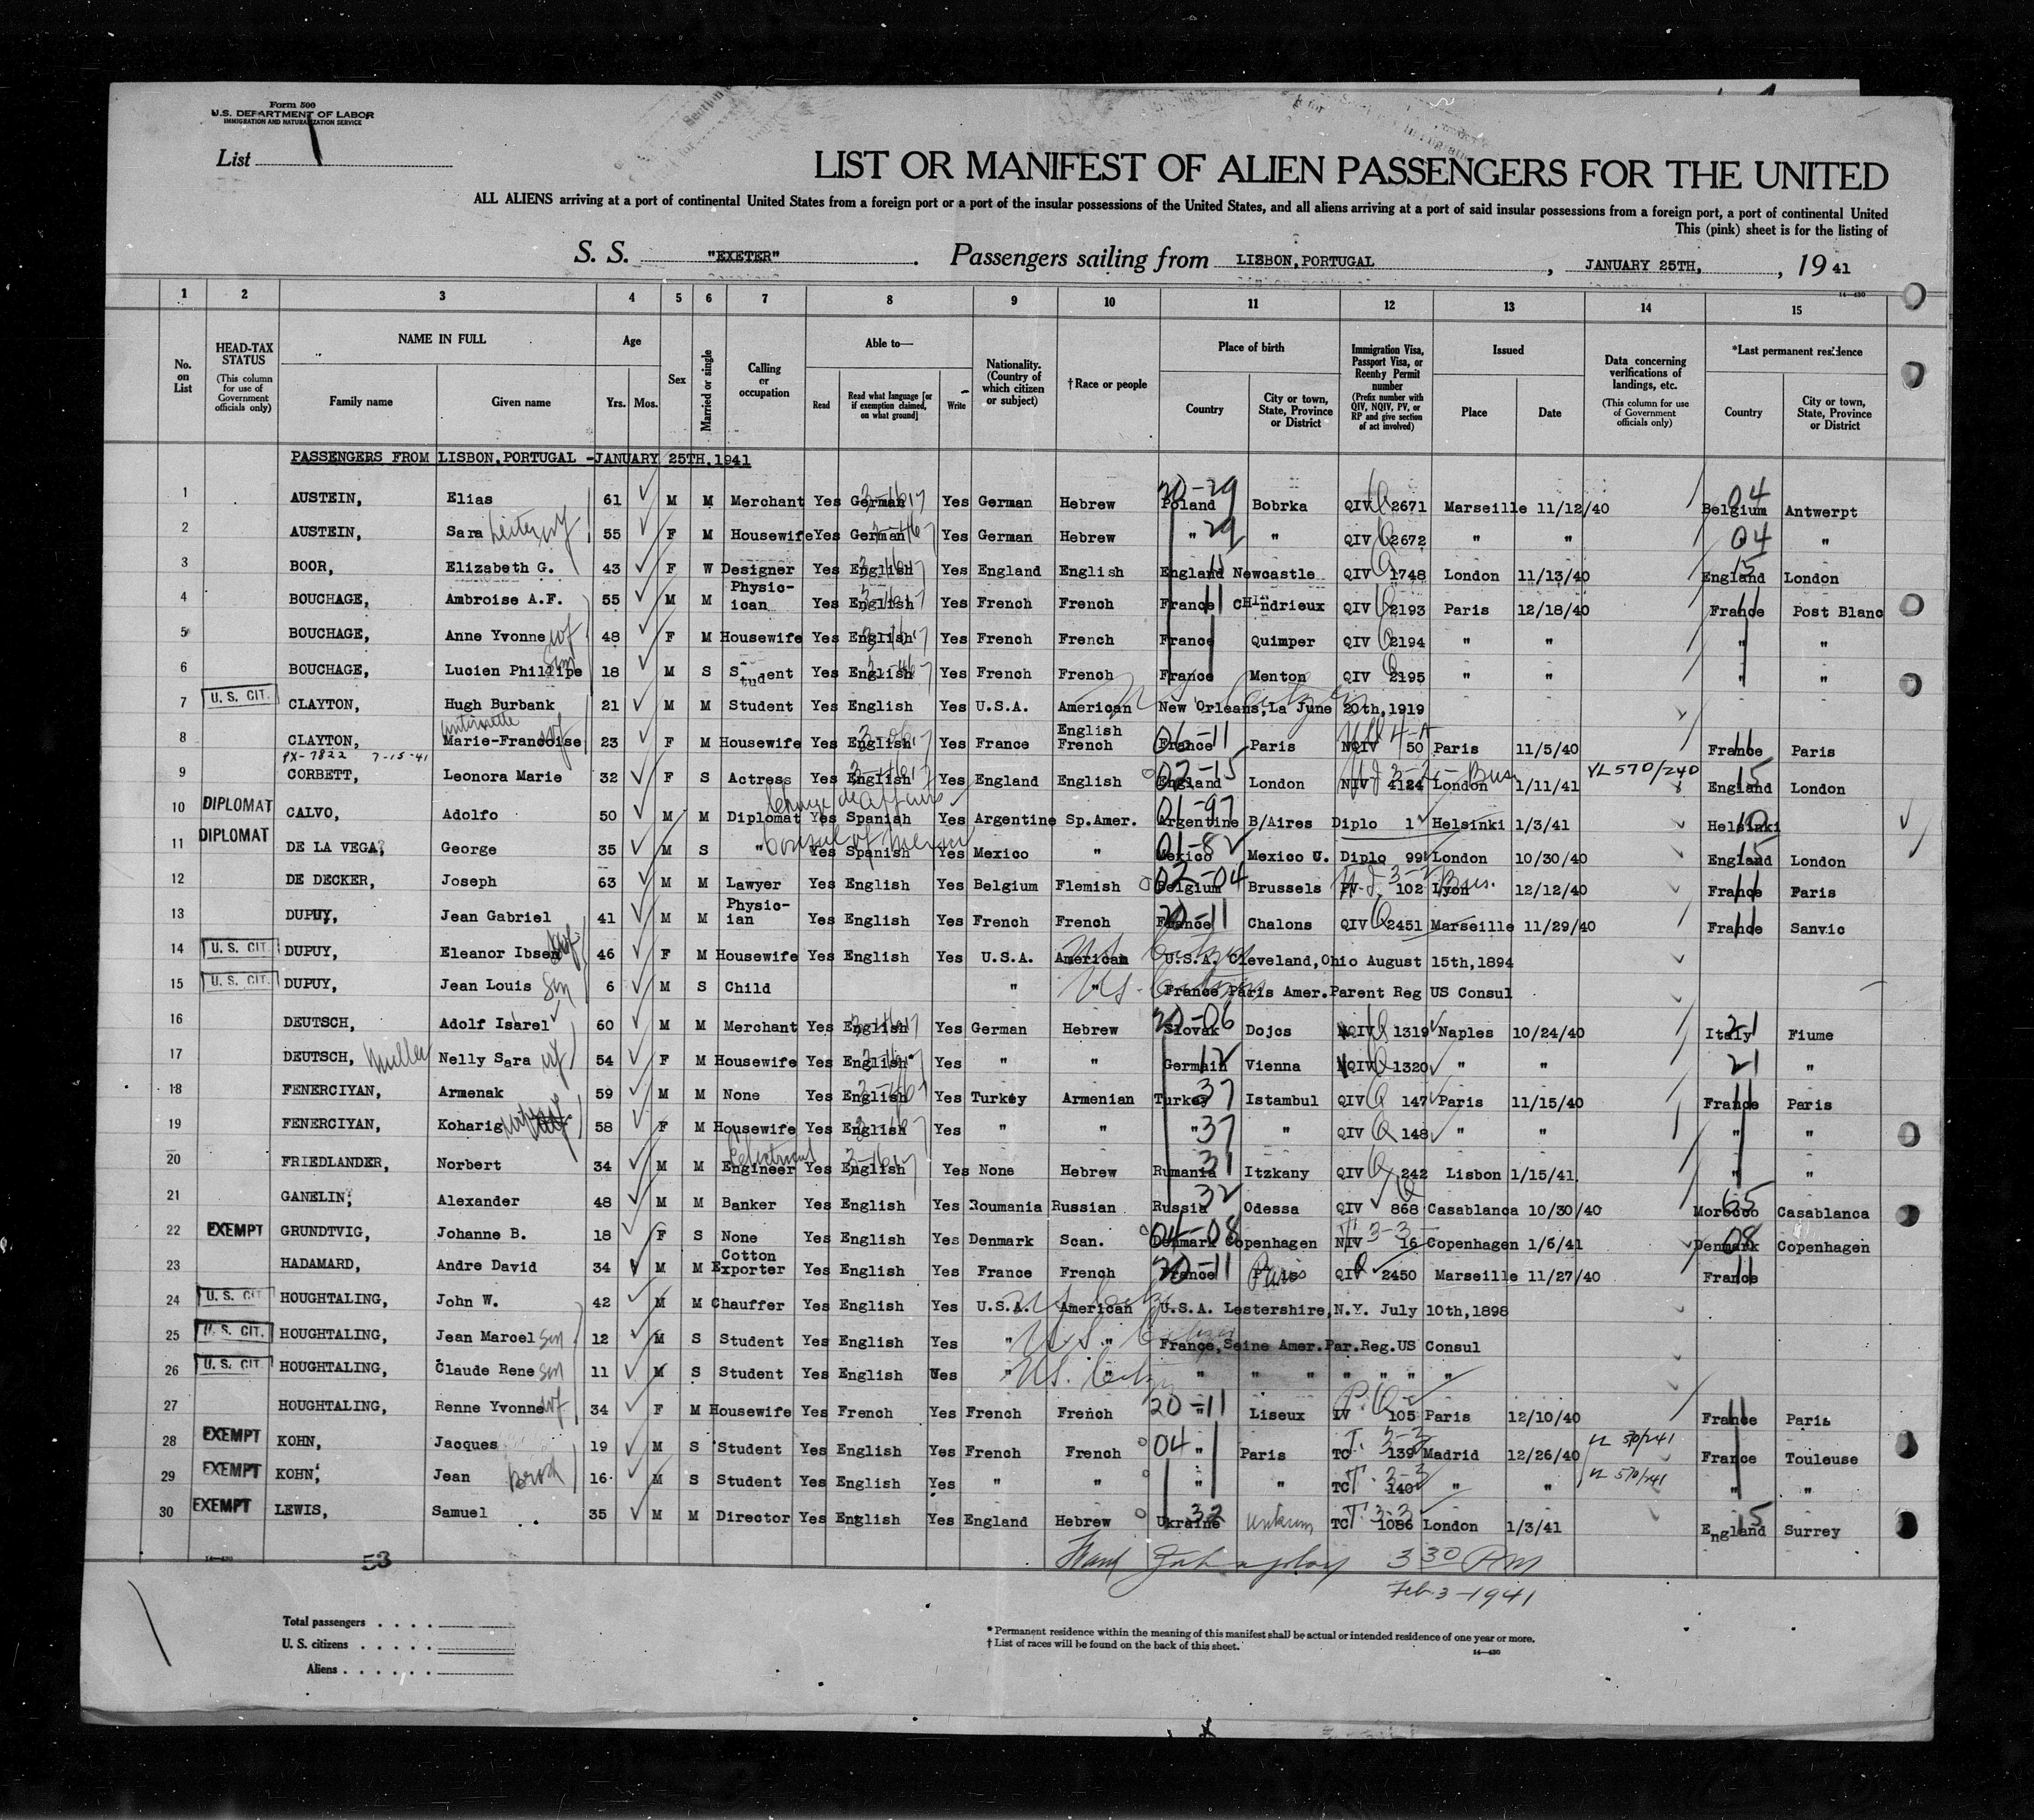 Form 500
U.S. DEPARTMENT OF LABOR
IMMIGRATION AND NATURALIZATION SERVICE
List 1
LIST OR MANIFEST OF ALIEN PASSENGERS FOR THE UNITED
ALL ALIENS arriving at a port of continental United States from a foreign port or a port of the insular possessions of the United States, and all aliens arriving at a port of said insular possessions from a foreign port, a port of continental United
This (pink) sheet is for the listing of
S. S. "EXETER". Passengers sailing from LISBON, PORTUGAL, JANUARY 25TH, , 19 41
14—430
1 2 3 4 5 6 7 8 9 10 11 12 13 14 15
No. on List
HEAD-TAX STATUS (This column for use of Government officials only)
NAME IN FULL Family name Given name
Age Yrs. Mos.
Sex
Married or single
Calling or occupation
Able to— Read Read what language [or if exemption claimed, on what ground] Write
Nationality. (Country of which citizen or subject)
† Race or people
Place of birth Country City or town, State, Province or District
Immigration Visa, Passport Visa, or Reentry Permit number (Prefix number with QIV, NQIV, PV, or RP and give section of act involved)
Issued Place Date
Data concerning verifications of landings, etc. (This column for use of Government officials only)
*Last permanent residence Country City or town, State, Province or District
PASSENGERS FROM LISBON, PORTUGAL -JANUARY 25TH, 1941
1 AUSTEIN, Elias 61 M M Merchant Yes German Yes German Hebrew 20-29 Poland Bobrka QIV 2671 Marseille 11/12/40 04 Belgium Antwerpt
2 AUSTEIN, Sara wf 55 F M Housewife Yes German Yes German Hebrew " 29 " QIV 2672 " " 04 "
3 BOOR, Elizabeth G. 43 F W Designer Yes English Yes England English England Newcastle QIV 1748 London 11/13/40 15 England London
4 BOUCHAGE, Ambroise A.F. 55 M M Physic-ican Yes English Yes French French France 11 CHindrieux QIV 2193 Paris 12/18/40 France 11 Post Blanc
5 BOUCHAGE, Anne Yvonne wf 48 F M Housewife Yes English Yes French French France Quimper QIV 2194 " " " "
6 BOUCHAGE, Lucien Phillipe Son 18 M S Student Yes English Yes French French France Menton QIV 2195 " " " "
7 U. S. CIT. CLAYTON, Hugh Burbank 21 M M Student Yes English Yes U.S.A. American New Orleans, La June 20th, 1919
8 CLAYTON, Antoinette Marie-Francoise wf 23 F M Housewife Yes English Yes France English French 06-11 France Paris NQIV 50 Paris 11/5/40 France 11 Paris
9 7-15-41 CORBETT, Leonora Marie 32 F S Actress Yes English Yes England English 02-15 England London NIV 4124 London Bus 1/11/41 VL 570/240 15 England London
10 DIPLOMAT CALVO, Adolfo 50 M M Charge de affairs Diplomat Yes Spanish Yes Argentine Sp.Amer. 01-97 Argentine B/Aires Diplo 1 Helsinki 1/3/41 Helsinki
11 DIPLOMAT DE LA VEGA, George 35 M S " Consul of Mexico Yes Spanish Yes Mexico " 01-82 Mexico Mexico U. Diplo 99 London 10/30/40 15 England London
12 DE DECKER, Joseph 63 M M Lawyer Yes English Yes Belgium Flemish 02-04 Belgium Brussels PV 102 Lyon Bus. 12/12/40 France 11 Paris
13 DUPUY, Jean Gabriel 41 M M Physic-ian Yes English Yes French French 20-11 France Chalons QIV 2451 Marseille 11/29/40 France 11 Sanvic
14 U. S. CIT. DUPUY, Eleanor Ibsen wf 46 F M Housewife Yes English Yes U.S.A. American U.S.A. Cleveland, Ohio August 15th, 1894
15 U. S. CIT. DUPUY, Jean Louis Son 6 M S Child " " France Paris Amer.Parent Reg US Consul
16 DEUTSCH, Adolf Isarel 60 M M Merchant Yes English Yes German Hebrew 20-06 Slovak Dojcs NQIV 1319 Naples 10/24/40 21 Italy Fiume
17 DEUTSCH, Muller Nelly Sara wf 54 F M Housewife Yes English Yes " " Germain 12 Vienna NQIV 1320 " " 21 "
18 FENERCIYAN, Armenak 59 M M None Yes English Yes Turkey Armenian Turkey 37 Istambul QIV 147 Paris 11/15/40 France 11 Paris
19 FENERCIYAN, Koharig wife 58 F M Housewife Yes English Yes " " " 37 " QIV 148 " " " "
20 FRIEDLANDER, Norbert 34 M M Electrical Engineer Yes English Yes None Hebrew Rumania 31 Itzkany QIV 242 Lisbon 1/15/41 " "
21 GANELIN, Alexander 48 M M Banker Yes English Yes Roumania Russian Russia 32 Odessa QIV 868 Casablanca 10/30/40 65 Morocco Casablanca
22 EXEMPT GRUNDTVIG, Johanne B. 18 F S None Yes English Yes Denmark Scan. 04-08 Denmark Copenhagen NIV 16 Copenhagen 1/6/41 08 Denmark Copenhagen
23 HADAMARD, Andre David 34 M M Cotton Exporter Yes English Yes France French 20-11 France Paris QIV 2450 Marseille 11/27/40 France 11
24 U. S. CIT HOUGHTALING, John W. 42 M M Chauffer Yes English Yes U.S.A. American U.S.A. Lestershire, N.Y. July 10th, 1898
25 U. S. CIT. HOUGHTALING, Jean Marcel Son 12 M S Student Yes English Yes " " France, Seine Amer.Par.Reg.US Consul
26 U. S. CIT HOUGHTALING, Claude Rene Son 11 M S Student Yes English Yes " " " " " " " "
27 HOUGHTALING, Renne Yvonne wf 34 F M Housewife Yes French Yes French French 20-11 " Liseux IV 105 Paris 12/10/40 France 11 Paris
28 EXEMPT KOHN, Jacques 19 M S Student Yes English Yes French French 04 " Paris TC 139 Madrid 12/26/40 VL 570/241 France Touleuse
29 EXEMPT KOHN, Jean Brod 16 M S Student Yes English Yes " " " " TC 140 " " VL 570/241 " "
30 EXEMPT LEWIS, Samuel 35 M M Director Yes English Yes England Hebrew Ukraine 32 TC 1086 London 1/3/41 15 England Surrey
3 30 PM
Feb. 3-1941
14—430
53
Total passengers
U. S. citizens
Aliens
* Permanent residence within the meaning of this manifest shall be actual or intended residence of one year or more.
† List of races will be found on the back of this sheet.
14—430